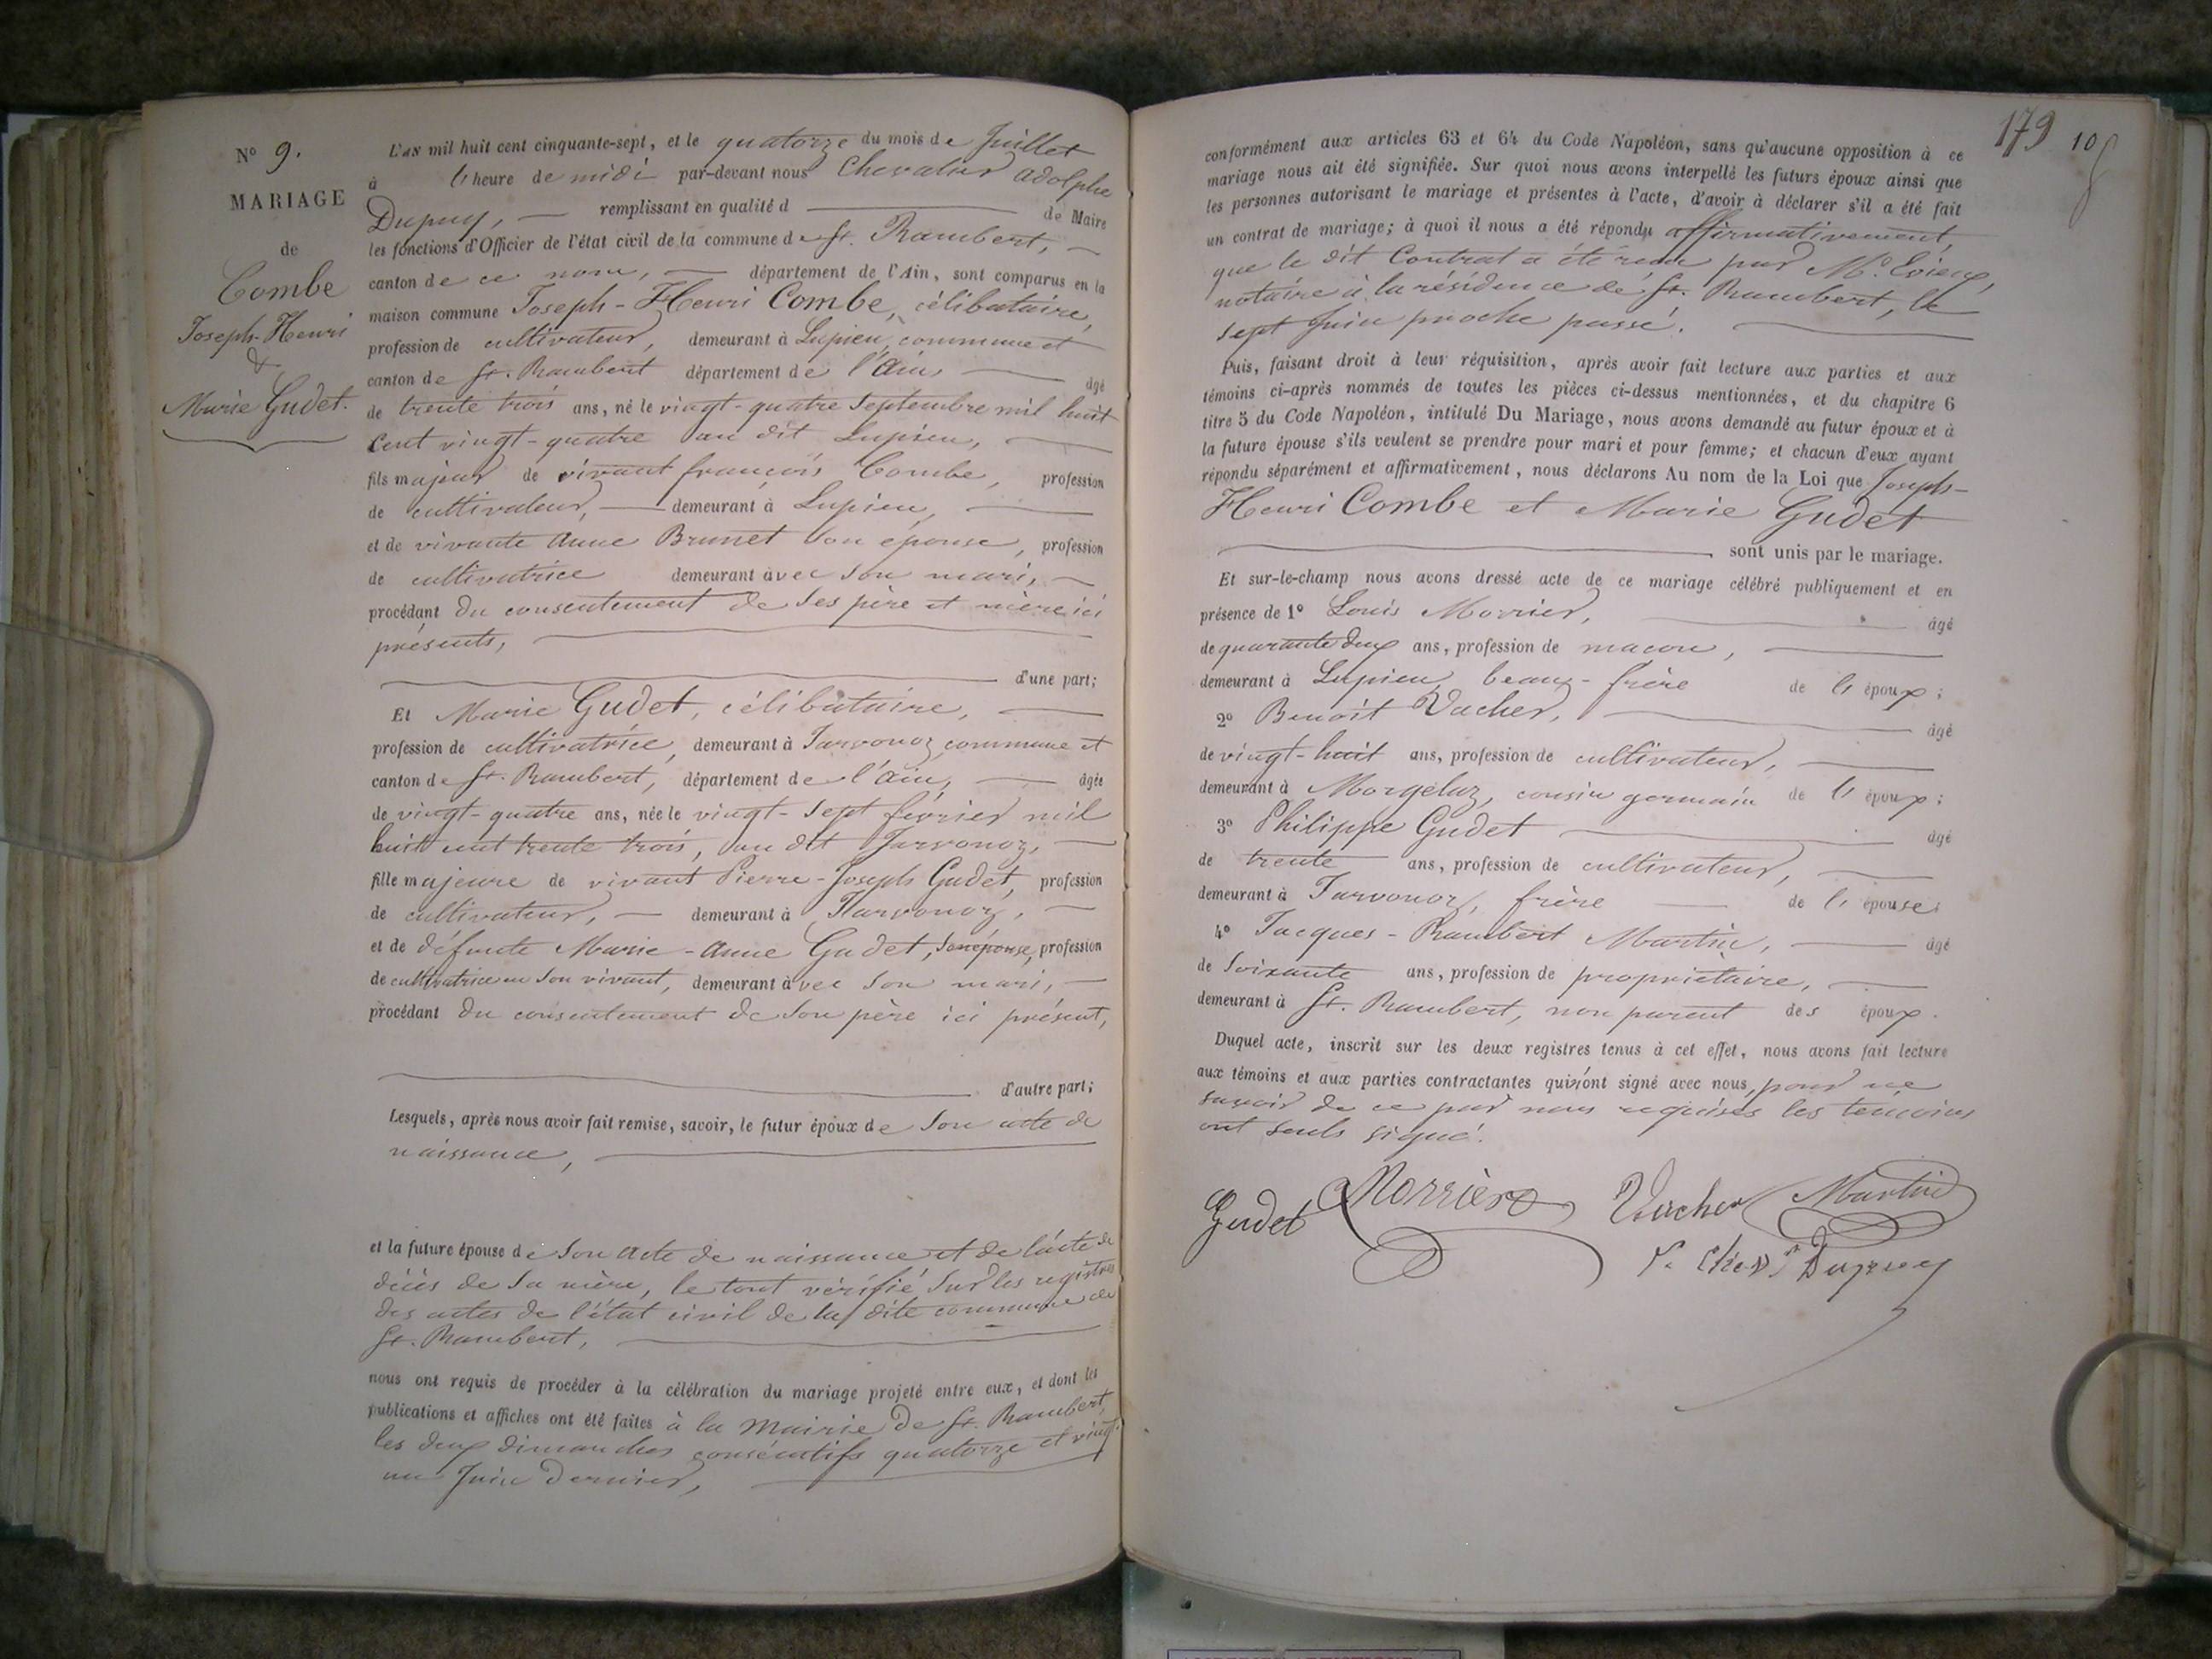 N° 9.
MARIAGE
de
Combe
Joseph-Henri
&
Marie Gudet.
L'AN mil huit cent cinquante-sept, et le quatorze du mois de Juillet
à l' heure de midi par-devant nous Chevalier Adolphe
Dupuy, remplissant en qualité d de Maire
les fonctions d'Officier de l'état civil de la commune de St. Rambert,
canton de ce nom, département de l'Ain, sont comparus en la
maison commune Joseph-Henri Combe, célibataire,
profession de cultivateur, demeurant à Lupieu, commune et
canton de St. Rambert département de l'Ain, âgé
de trente trois ans, né le vingt-quatre Septembre mil huit
cent vingt-quatre au dit Lupieu,
fils majeur de vivant françois Combe, profession
de cultivateur, demeurant à Lupieu,
et de vivante Anne Brunet son épouse, profession
de cultivatrice demeurant avec son mari,
procédant du consentement de ses père et mère ici
présents,
d'une part;
Et Marie Gudet, célibataire,
profession de cultivatrice, demeurant à Javornoz, commune et
canton de St. Rambert, département de l'Ain, âgée
de vingt-quatre ans, née le vingt-sept février mil
huit cent trente trois, au dit Javornoz,
fille majeure de vivant Pierre-Joseph Gudet, profession
de cultivateur, demeurant à Javornoz,
et de défunte Marie-Anne Gudet, son épouse, profession
de cultivatrice en son vivant, demeurant avec son mari,
procédant du consentement de son père ici présent,
d'autre part;
Lesquels, après nous avoir fait remise, savoir, le futur époux de son acte de
naissance,
et la future épouse de son acte de naissance et de l'acte de
décès de sa mère, le tout vérifié sur les registres
des actes de l'état civil de la dite commune de
St. Rambert,
nous ont requis de procéder à la célébration du mariage projeté entre eux, et dont les
publications et affiches ont été faites à la Mairie de St. Rambert,
les deux dimanches consécutifs quatorze et vingt
un Juin dernier,
179 10
conformément aux articles 63 et 64 du Code Napoléon, sans qu'aucune opposition à ce
mariage nous ait été signifiée. Sur quoi nous avons interpellé les futurs époux ainsi que
les personnes autorisant le mariage et présentes à l'acte, d'avoir à déclarer s'il a été fait
un contrat de mariage; à quoi il nous a été répondu affirmativement,
que le dit Contrat a été reçu par Me.
notaire à la résidence de St. Rambert, le
sept Juin proche passé.
Puis, faisant droit à leur réquisition, après avoir fait lecture aux parties et aux
témoins ci-après nommés de toutes les pièces ci-dessus mentionnées, et du chapitre 6
titre 5 du Code Napoléon, intitulé Du Mariage, nous avons demandé au futur époux et à
la future épouse s'ils veulent se prendre pour mari et pour femme; et chacun d'eux ayant
répondu séparément et affirmativement, nous déclarons Au nom de la Loi que Joseph-
Henri Combe et Marie Gudet
sont unis par le mariage.
Et sur-le-champ nous avons dressé acte de ce mariage célébré publiquement et en
présence de 1° Louis Morrier, âgé
de quarante deux ans, profession de macon,
demeurant à Lupieu, beau-frère de l' époux;
2° Benoit Vacher, âgé
de vingt-huit ans, profession de cultivateur,
demeurant à Morgelaz, cousin germain de l' époux;
3° Philippe Gudet âgé
de trente ans, profession de cultivateur,
demeurant à Javornoz, frère de l' épouse;
4° Jacques-Rambert Martin, âgé
de soixante ans, profession de propriétaire,
demeurant à St. Rambert, non parent des époux.
Duquel acte, inscrit sur les deux registres tenus à cet effet, nous avons fait lecture
aux témoins et aux parties contractantes qui n'ont signé avec nous, pour ne
savoir de ce par nous requises les témoins
ont seuls signé.
Gudet Morrier Vacher Martin
Dupuy